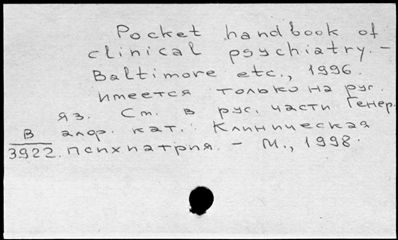 Pocket handbook of
clinical psychiatry. -
Baltimore etc., 1996.
имеется только на рус.
яз. См. в рус. части Генер.
алф. кат.: Клиническая
В
3922. психиатрия. - М., 1998.